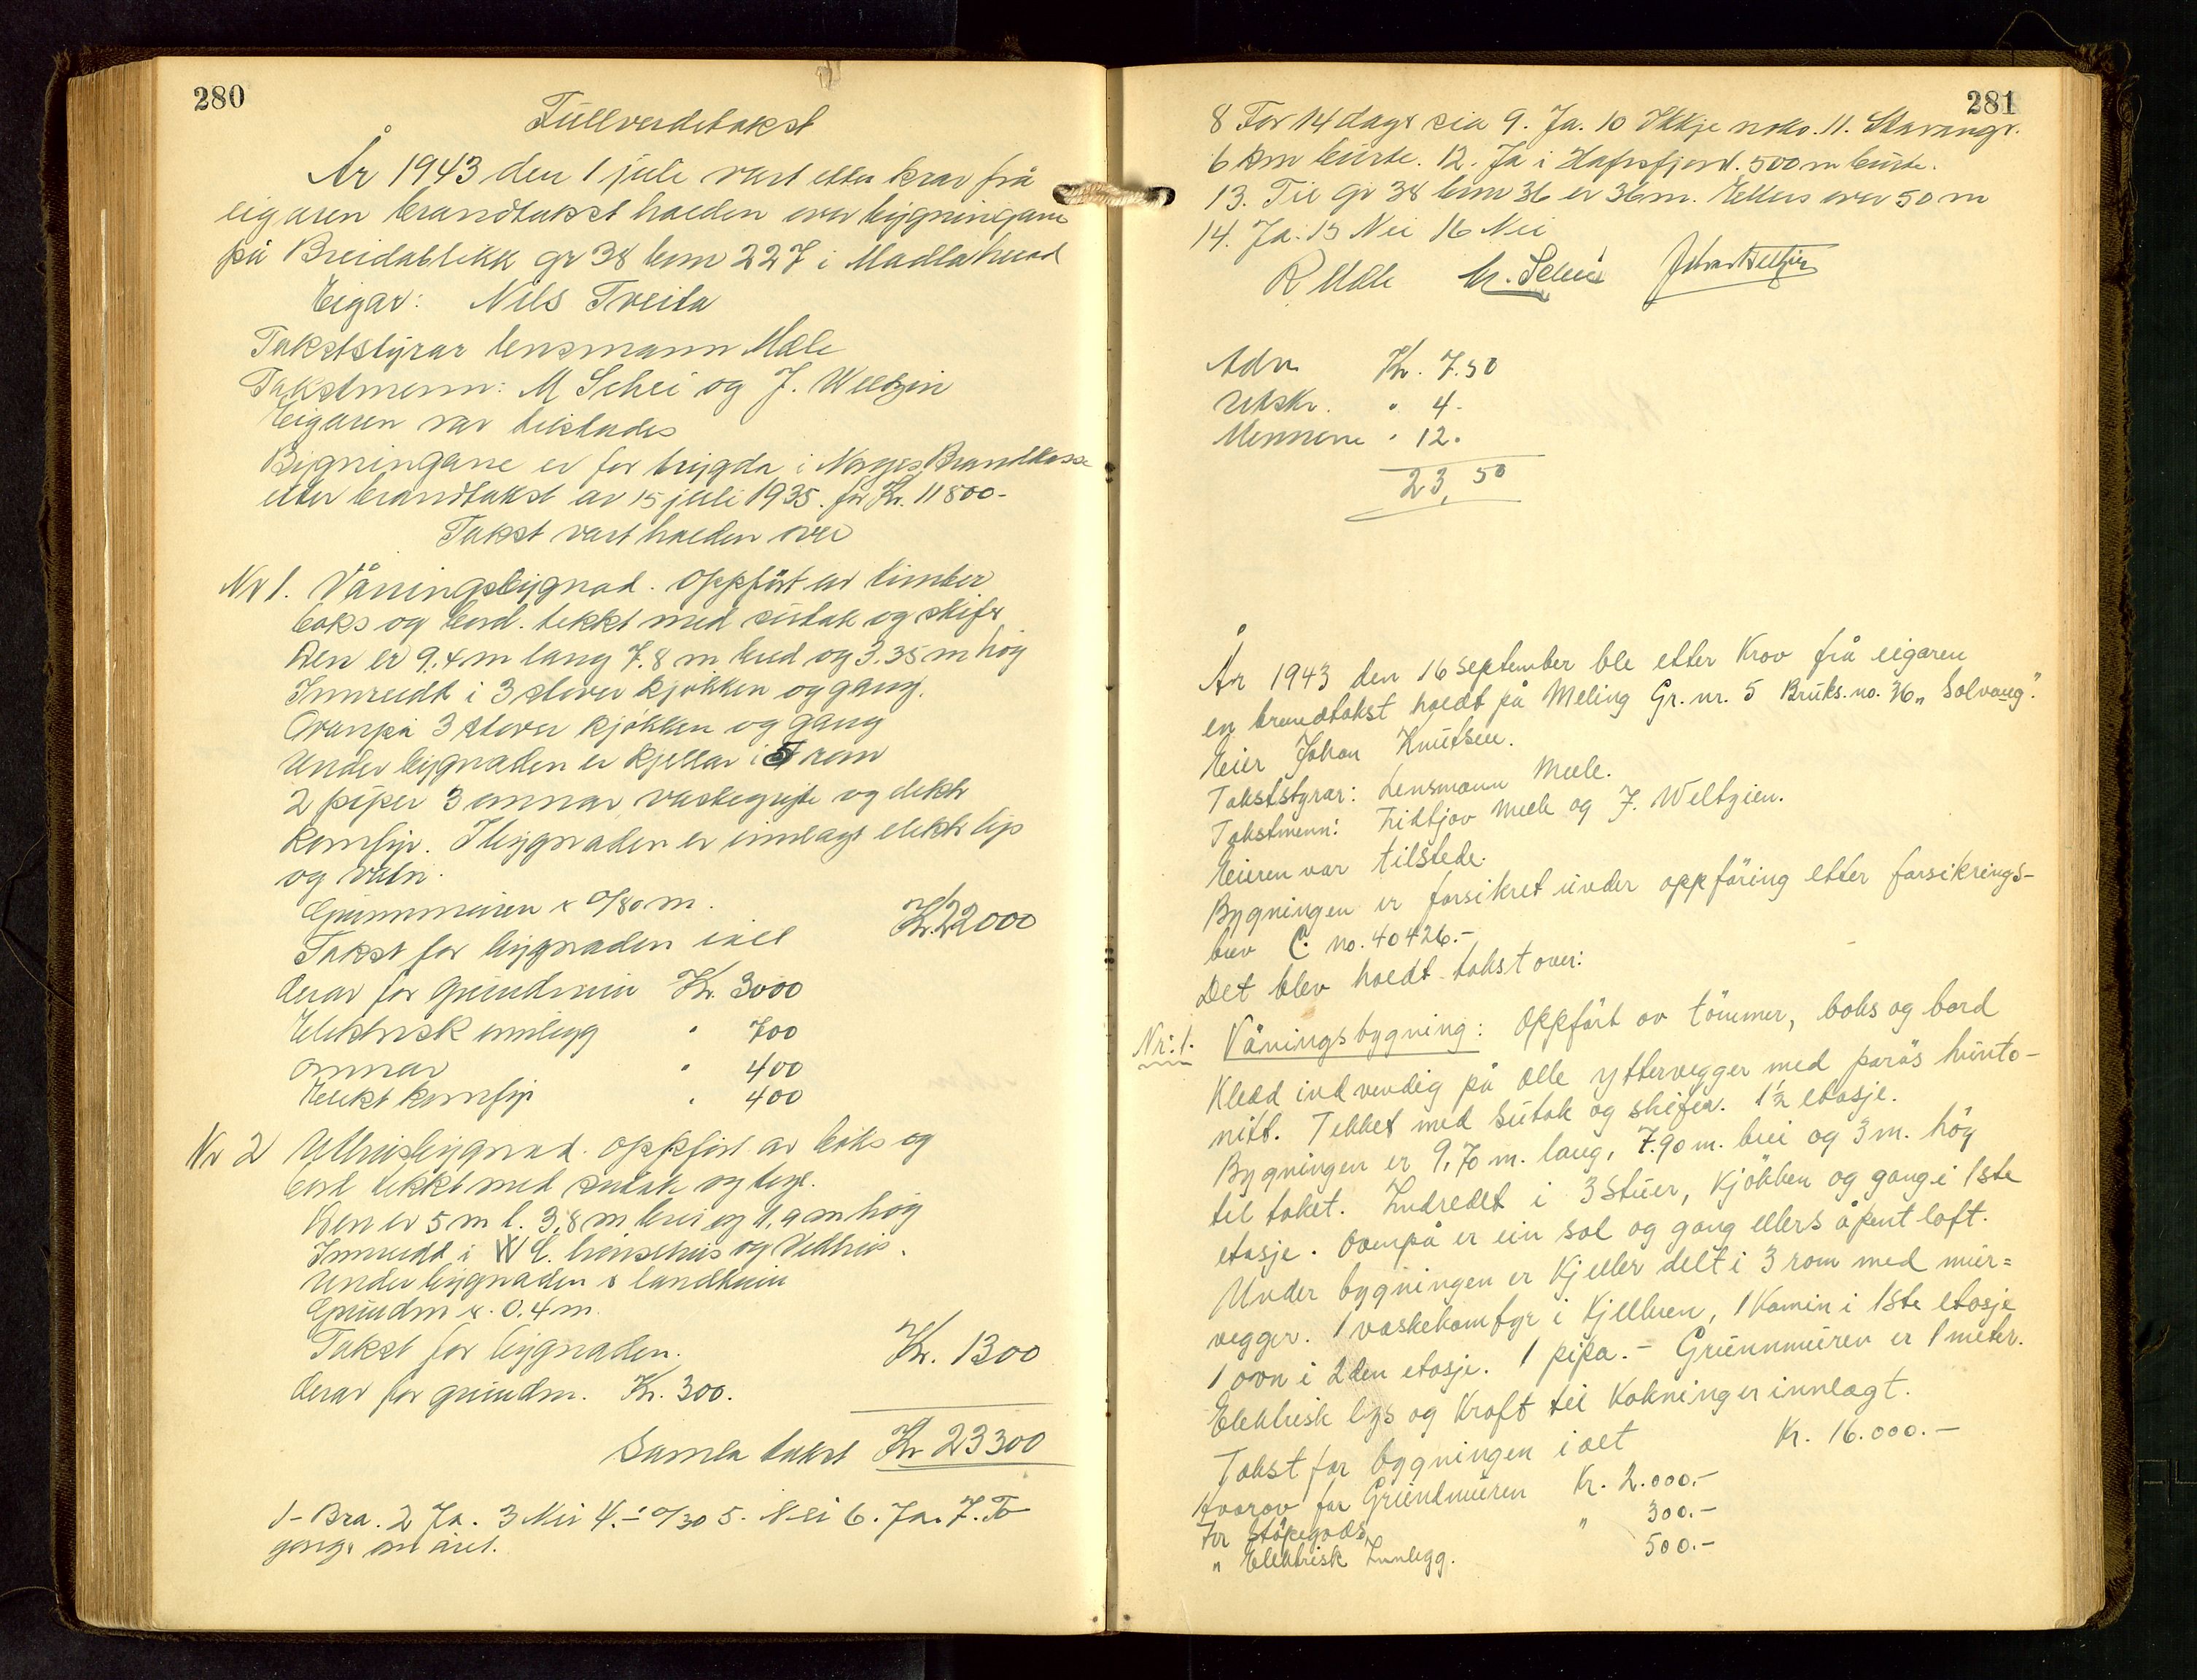 280
Fullverdetakst
År 1943 den 1 juli vart etter krav frå
eigaren brandtakst halden over bygningane
på Breidablikk gr 38 brn 227 i Madla herad
Eigar: Nils Tveita
Takststyrar lensmann Mæle
Takstmenn: M Schei og J. Weltzin
Eigaren var tilstades
Bygningane er for trygda i Norges Brandkasse
etter brandtakst av 15 juli 1935. for Kr. 11800-
Takst vart halden over
Nr 1. Våningsbygnad. Oppført av timber
boks og bord. tekkt med sutak og skifer
Den er 9.4 m lang 7.8 m breid og 3.35 m høg
Innreidt i 3 stover kjøkken og gang.
Ovanpå 3 stover kjøkken og gang
Under bygnaden er kjellar i 5 rom
2 piper 3 omnar vaskegryte og elektr
komfyr. I bygnaden er innlagt elektr lys
og vatn.
Grunnmuren er 0/80 m.
Takst for bygnaden ialt Kr. 22000
Derav for grundmur Kr. 3000
Elektrisk innlegg " 700
omnar " 400
Elekt komfyr " 400
Nr 2 Uthusbygnad. Oppført av boks og
bord tekkt med sutak og tegl.
Den er 5 m l. 3,8 m brei og 1,9 m høg
Innreidt i W C. hønsehus og Vedhus.
Under bygnaden er landkum
Grundm er. 0.4 m.
Takst for bygnaden. Kr. 1300
Derav for grundm. Kr. 300.
Samla takst Kr 23300
1- Bra. 2 Ja. 3 Nei 4.- 0/30 5. Nei 6. Ja. 7. To
gonger om året.
281
8 For 14 dagr sia 9. Ja. 10 Ikkje noko. 11. Stavanger.
6 km burte. 12. Ja i Hafrsfjord. 500 m burte.
13. Til gr 38 brn 36 er 36 m. Ellers over 50 m
14. Ja. 15 Nei 16 Nei
R Mæle M. Schei Johan Weltzin
Adv. Kr. 7.50
Utskr. " 4-
Mennene " 12.
23,50
År 1943 den 16 September ble etter Krav frå eigaren
en brandtakst holdt på Meling Gr. nr. 5 Bruks. no. 36 „Solvang".
Eier Johan Knutsen.
Takststyrar: Lensmann Mæle.
Takstmenn: Fridtjov Mæle og J. Weltzien.
Eieren var tilstede.
Bygningen er forsikret under oppføring etter forsikrings-
brev C. no. 40426.-
Det blev holdt takst over:
Nr: 1. Våningsbygning: Oppført av tömmer, boks og bord
Kledd indvendig på alle yttervegger med porøs hunto-
nitt. Tekket med Sutak og skifer. 1½ etasje.
Bygningen er 9,70 m. lang, 7.90 m. brei og 3 m. høg
til taket. Indredet i 3 stuer, Kjökken og gang i 1ste
etasje. Ovenpå er ein sal og gang ellers åpent loft.
Under bygningen er Kjeller delt i 3 rom med mur=
vegger. 1 vaskekomfyr i Kjelleren, 1 Kamin i 1ste etasje
1 ovn i 2den etasje. 1 pipa.- Grunnmuren er 1 meter.
Elektrisk lys og Kraft til Kokninger innlagt.
Takst for bygningen i alt Kr. 16.000.-
Hvorav for Grundmuren Kr. 2.000.-
For Støpegods " 300.-
" Elektrisk Innlegg. 500.-